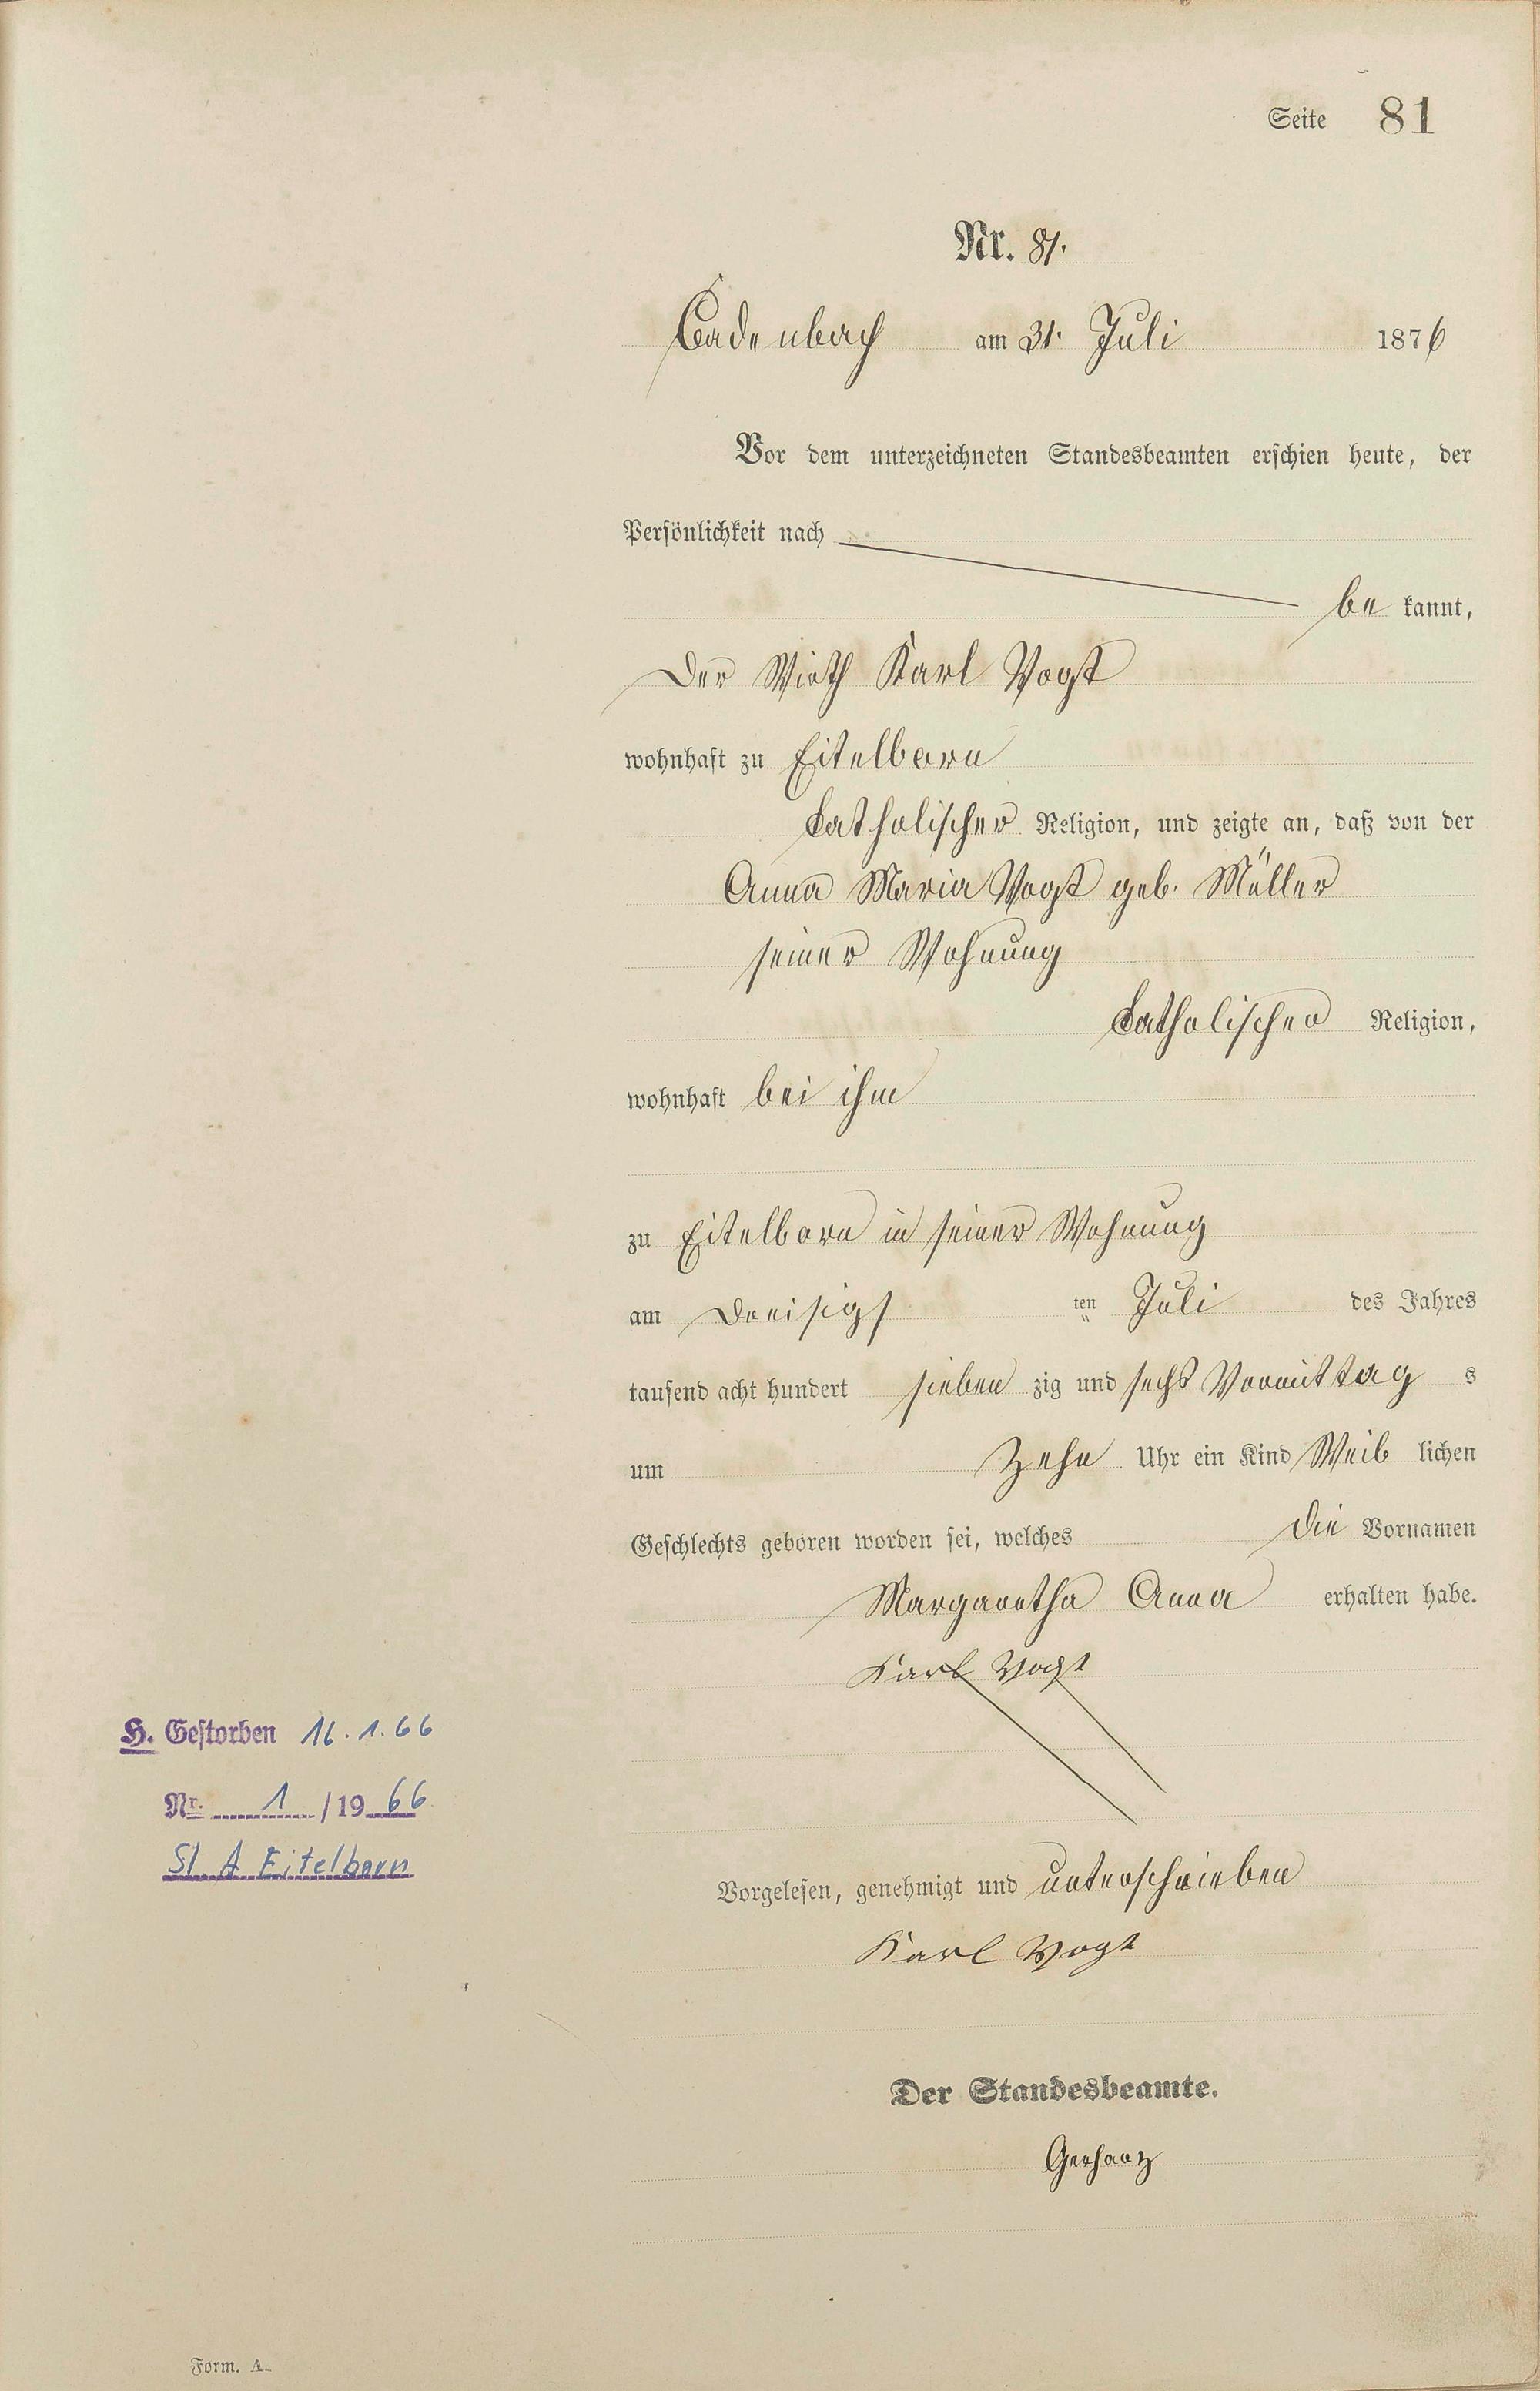 Seite 81
Nr. 81.
Cadenbach am 31. Juli 1876
Vor dem unterzeichneten Standesbeamten erschien heute, der
Persönlichkeit nach
be kannt,
Der Wirth Karl Vogt
wohnhaft zu Eitelborn
katholischer Religion, und zeigte an, daß von der
Anna Maria Vogt geb. Müller
seiner Wohnung
katholischer Religion,
wohnhaft bei ihm
zu Eitelborn in seiner Wohnung
am Dreisigs ten Juli des Jahres
tausend acht hundert sieben zig und sechs Vormittag s
um Zehn Uhr ein Kind Weib lichen
Geschlechts geboren worden sei, welches die Vornamen
Margaretha Anna erhalten habe.
Karl Vogt
H. Gestorben 16.1.66
Nr. 1 /19 66
St. A Eitelborn
Vorgelesen, genehmigt und unterschrieben
Karl Vogt
Der Standesbeamte.
Gerharz
Form. A.